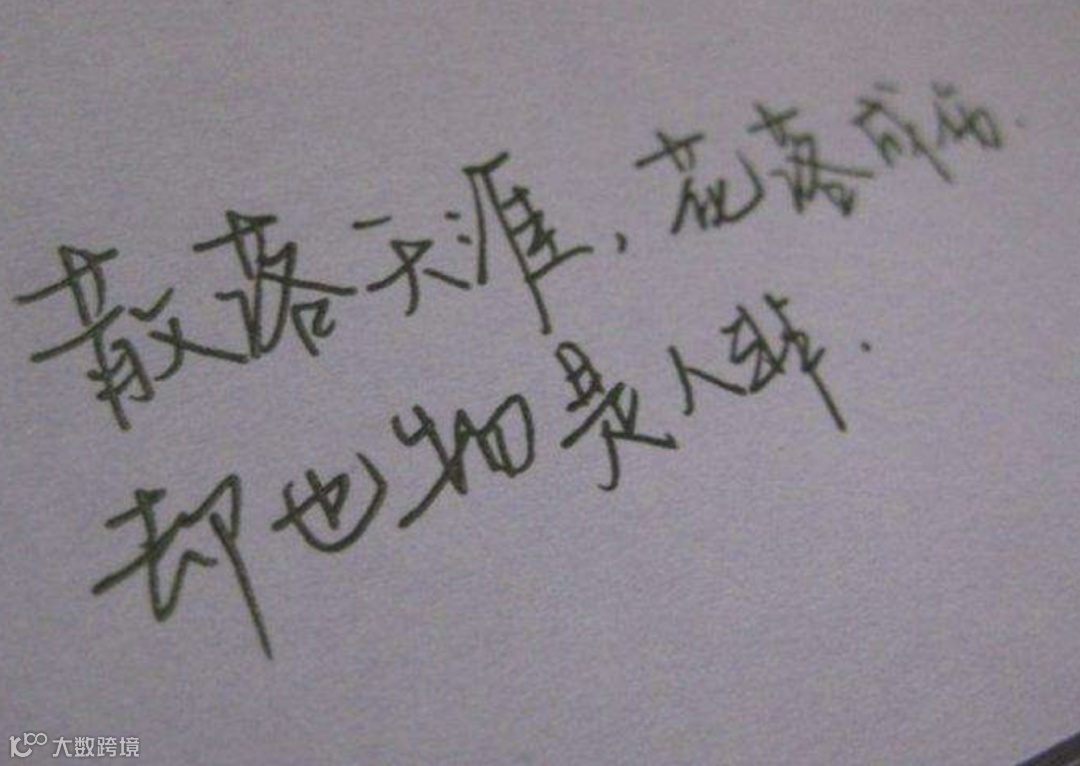 散落天涯，花落成伤.
却也物是人非.
大数跨境